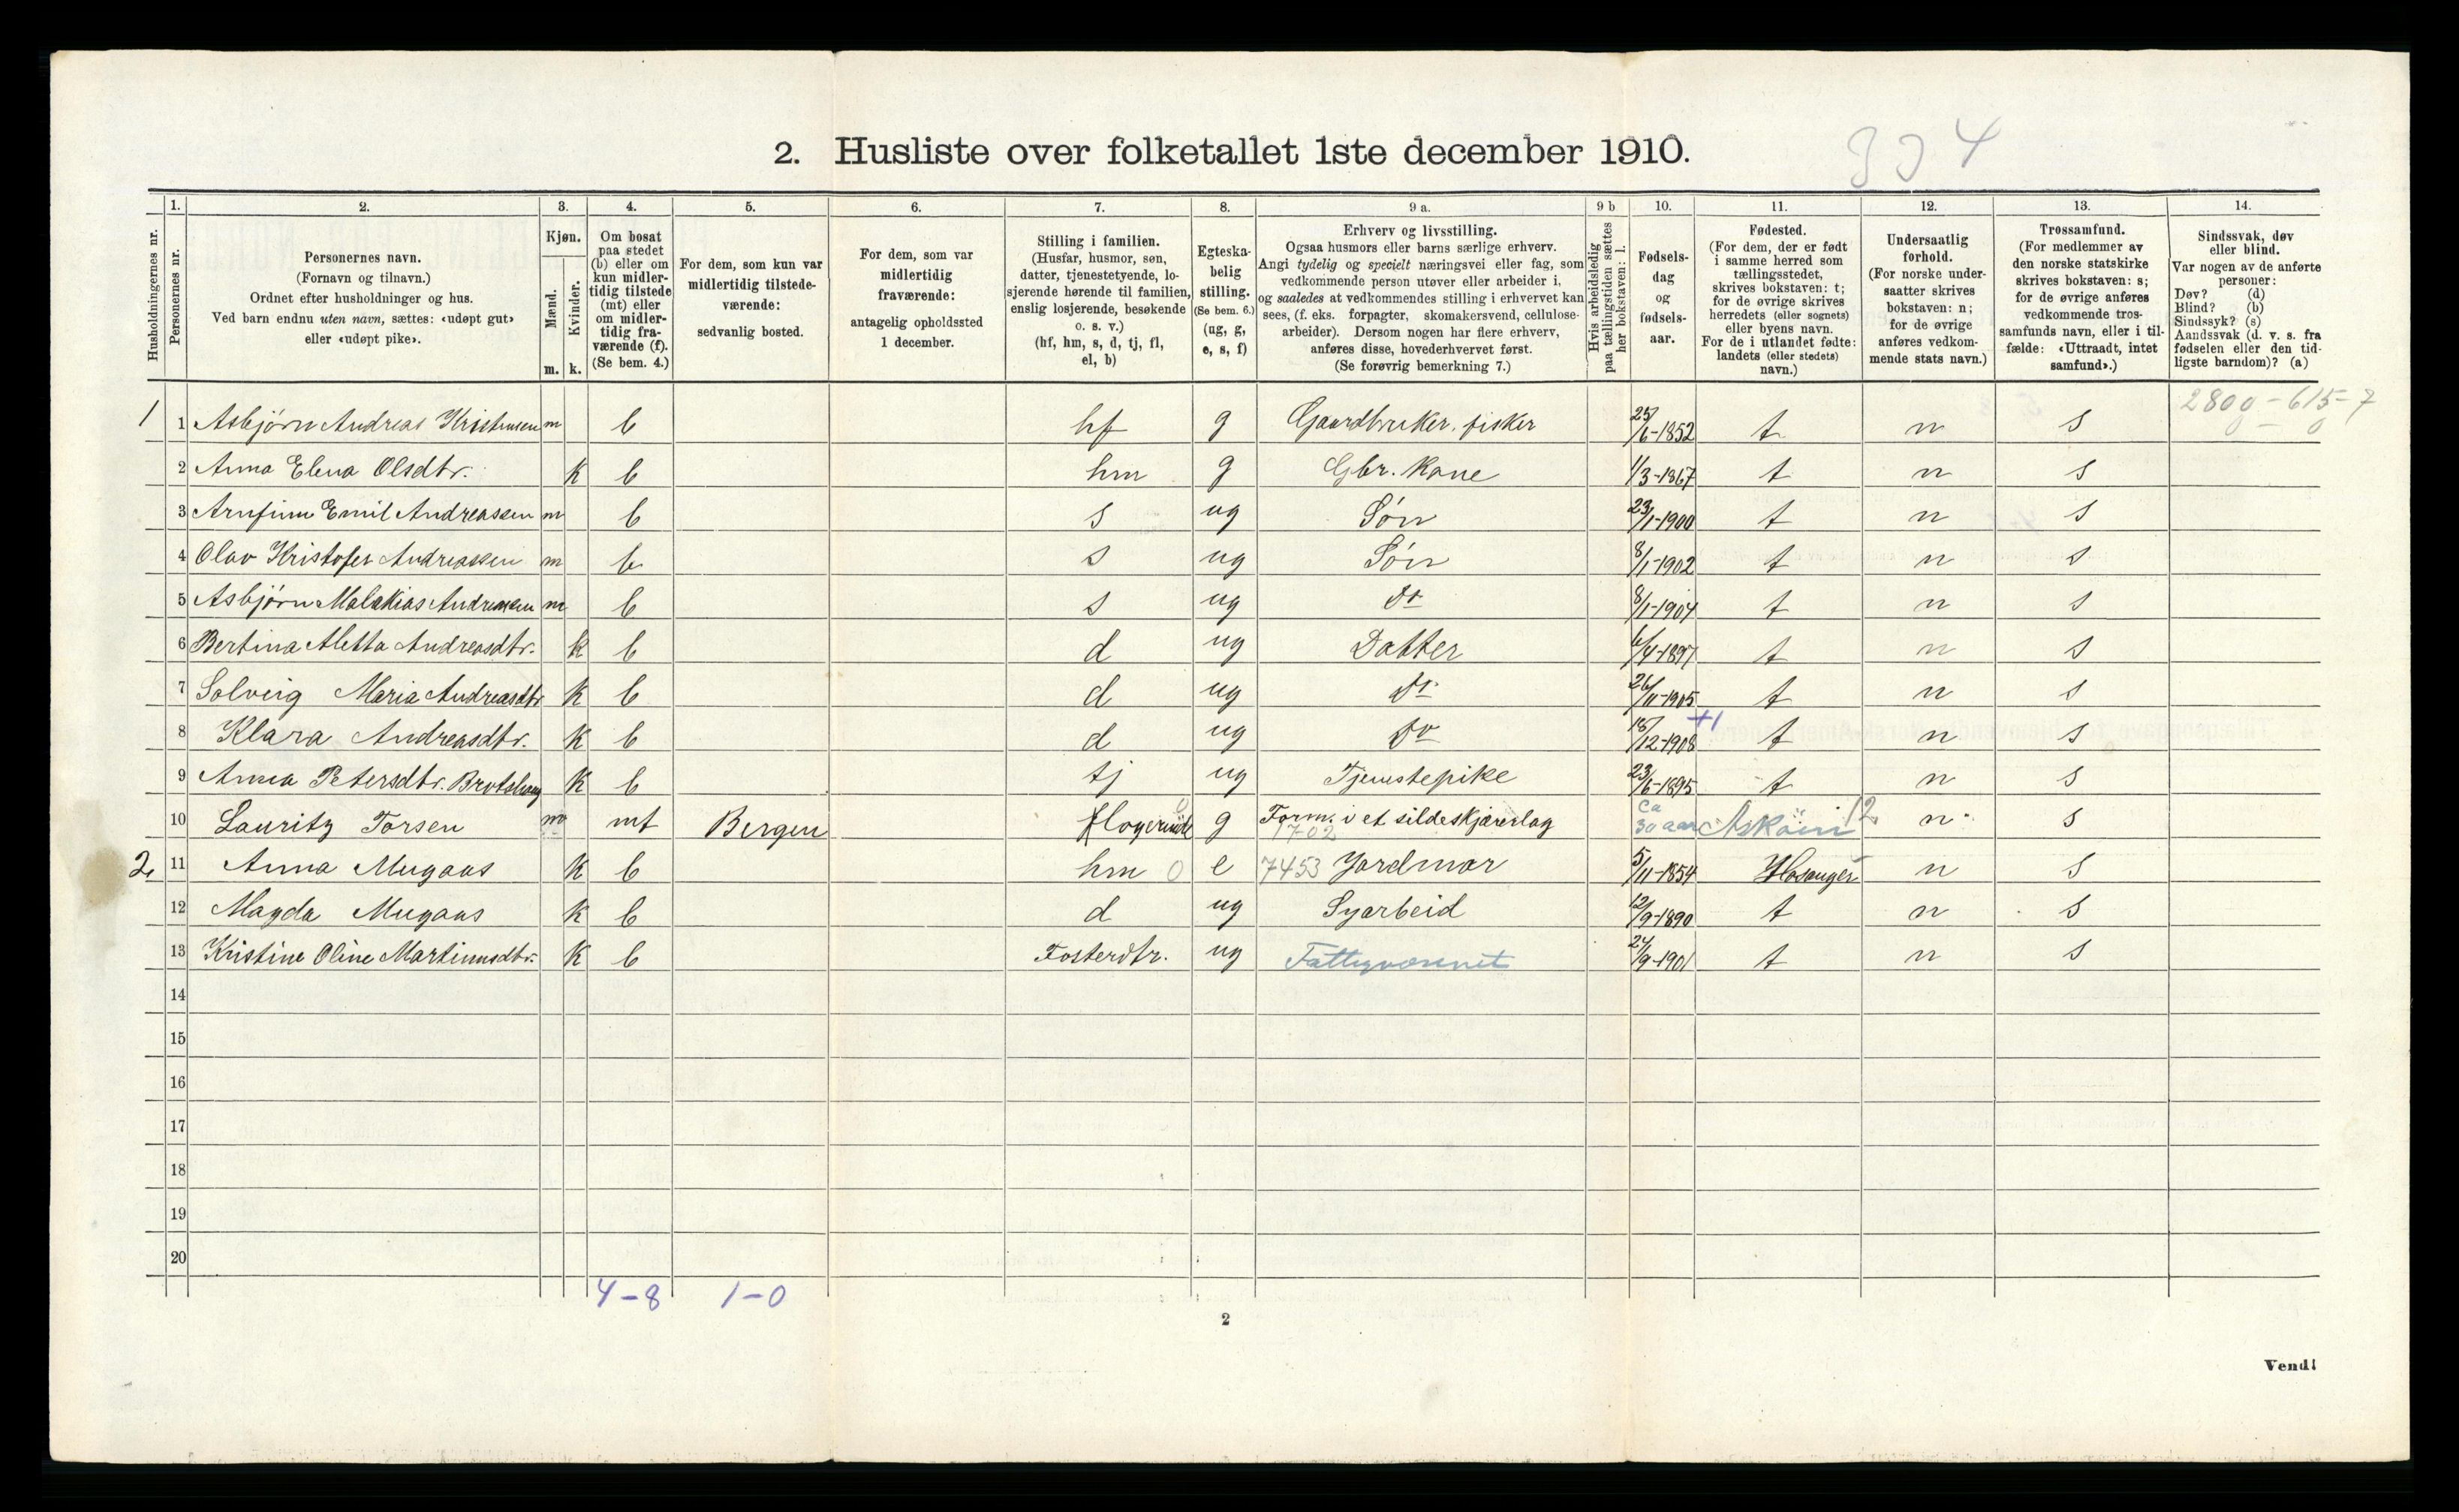 2. Husliste over folketallet 1ste december 1910.
334
Husholdningernes nr.
1.
Personernes nr.
2.
Personernes navn.
(Fornavn og tilnavn.)
Ordnet efter husholdninger og hus.
Ved barn endnu uten navn, sættes: «udøpt gut»
eller «udøpt pike».
3.
Kjøn.
Mænd.
Kvinder.
m. k.
4.
Om bosat
paa stedet
(b) eller om
kun midler-
tidig tilstede
(mt) eller
om midler-
tidig fra-
værende (f).
(Se bem. 4.)
5.
For dem, som kun var
midlertidig tilstede-
værende:
sedvanlig bosted.
6.
For dem, som var
midlertidig
fraværende:
antagelig opholdssted
1 december.
7.
Stilling i familien.
(Husfar, husmor, søn,
datter, tjenestetyende, lo-
sjerende hørende til familien,
enslig losjerende, besøkende
o. s. v.)
(hf, hm, s, d, tj, fl,
el, b)
8.
Egteska-
belig
stilling.
(Se bem. 6.)
(ug, g,
e, s, f)
9 a.
Erhverv og livsstilling.
Ogsaa husmors eller barns særlige erhverv.
Angi tydelig og specielt næringsvei eller fag, som
vedkommende person utøver eller arbeider i,
og saaledes at vedkommendes stilling i erhvervet kan
sees, (f. eks. forpagter, skomakersvend, cellulose-
arbeider). Dersom nogen har flere erhverv,
anføres disse, hovederhvervet først.
(Se forøvrig bemerkning 7.)
9 b
Hvis arbeidsledig
paa tællingstiden sættes
her bokstaven: l.
10.
Fødsels-
dag
og
fødsels-
aar.
11.
Fødested.
(For dem, der er født
i samme herred som
tællingsstedet,
skrives bokstaven: t;
for de øvrige skrives
herredets (eller sognets)
eller byens navn.
For de i utlandet fødte:
landets (eller stedets)
navn.)
12.
Undersaatlig
forhold.
(For norske under-
saatter skrives
bokstaven: n;
for de øvrige
anføres vedkom-
mende stats navn.)
13.
Trossamfund.
(For medlemmer av
den norske statskirke
skrives bokstaven: s;
for de øvrige anføres
vedkommende tros-
samfunds navn, eller i til-
fælde: «Uttraadt, intet
samfund».)
14.
Sindssvak, døv
eller blind.
Var nogen av de anførte
personer:
Døv? (d)
Blind? (b)
Sindssyk? (s)
Aandssvak (d. v. s. fra
fødselen eller den tid-
ligste barndom)? (a)
2800 - 615 - 7
0 0
1 1 Asbjørn Andreas Kristensen m b hf g Gaardbruker, fisker 25/6-1852 t n s
2 Anna Elena Olsdtr. k b hm g Gbr. Kone 1/3-1867 t n s
3 Arnfinn Emil Andreassen m b s ug Søn 23/1-1900 t n s
4 Olav Kristofer Andreassen m b s ug Søn 8/1-1902 t n s
5 Asbjørn Malakias Andreassen m b s ug do 8/1-1904 t n s
6 Bertina Aletta Andreasdtr. k b d ug Datter 6/4-1897 t n s
7 Solveig Maria Andreasdtr k b d ug do 26/11-1905 t n s
8 Klara Andreasdtr. k b d ug do 18/12-1908 +1 t n s
9 Anna Petersdtr. k b tj ug Tjenestepike 23/6-1895 t n s
10 Lauritz Torsen m mt Bergen g Form. i et sildeskjærerlag 1702 ca 30 aar Askøin 12 n s
2 11 Anna Mugaas k b hm 0 e 7453 Jordmor 5/11-1854 Hosanger n s
12 Magda Mugaas k b d ug Syarbeid 12/9-1890 t n s
13 Kristine Oline Martinusdtr. k b Fosterdtr. ug Fattigvæsenet 24/9-1901 t n s
14
15
16
17
18
19
20
4-8 1-0
2
Vend!